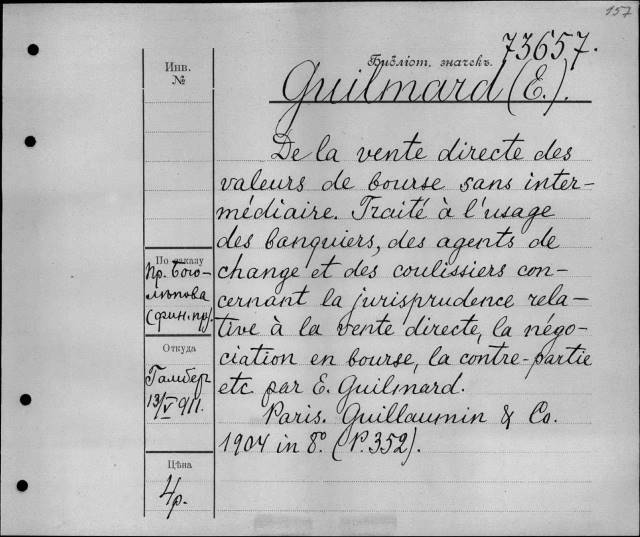 157
73657.
Библіот. значекъ.
Guilmard (E.).
Инв.
№
De la vente directe des
valeurs de bourse sans inter-
médiaire. Traité à l'usage
des banquiers, des agents de
change et des coulissiers con-
cernant la jurisprudence rela-
tive à la vente directe, la négo-
ciation en bourse, la contre-partie
etc par E. Guilmard.
Paris. Guillaumin & Co.
1904 in 8°. (P. 352).
По заказу
Пр. Бого-
лѣпова
(фин. пр).
Откуда
Гамбер
13/V 911.
Цѣна
4р.